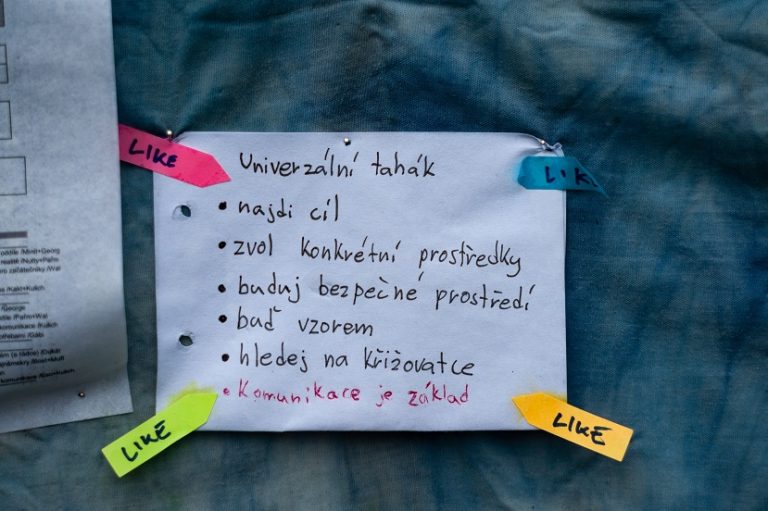 LIKE
Univerzální tahák
LIK
• najdi cíl
• zvol konkrétní prostředky
• buduj bezpečné prostředí
• buď vzorem
• hledej na křižovatce
• Komunikace je základ
LIKE
LIKE